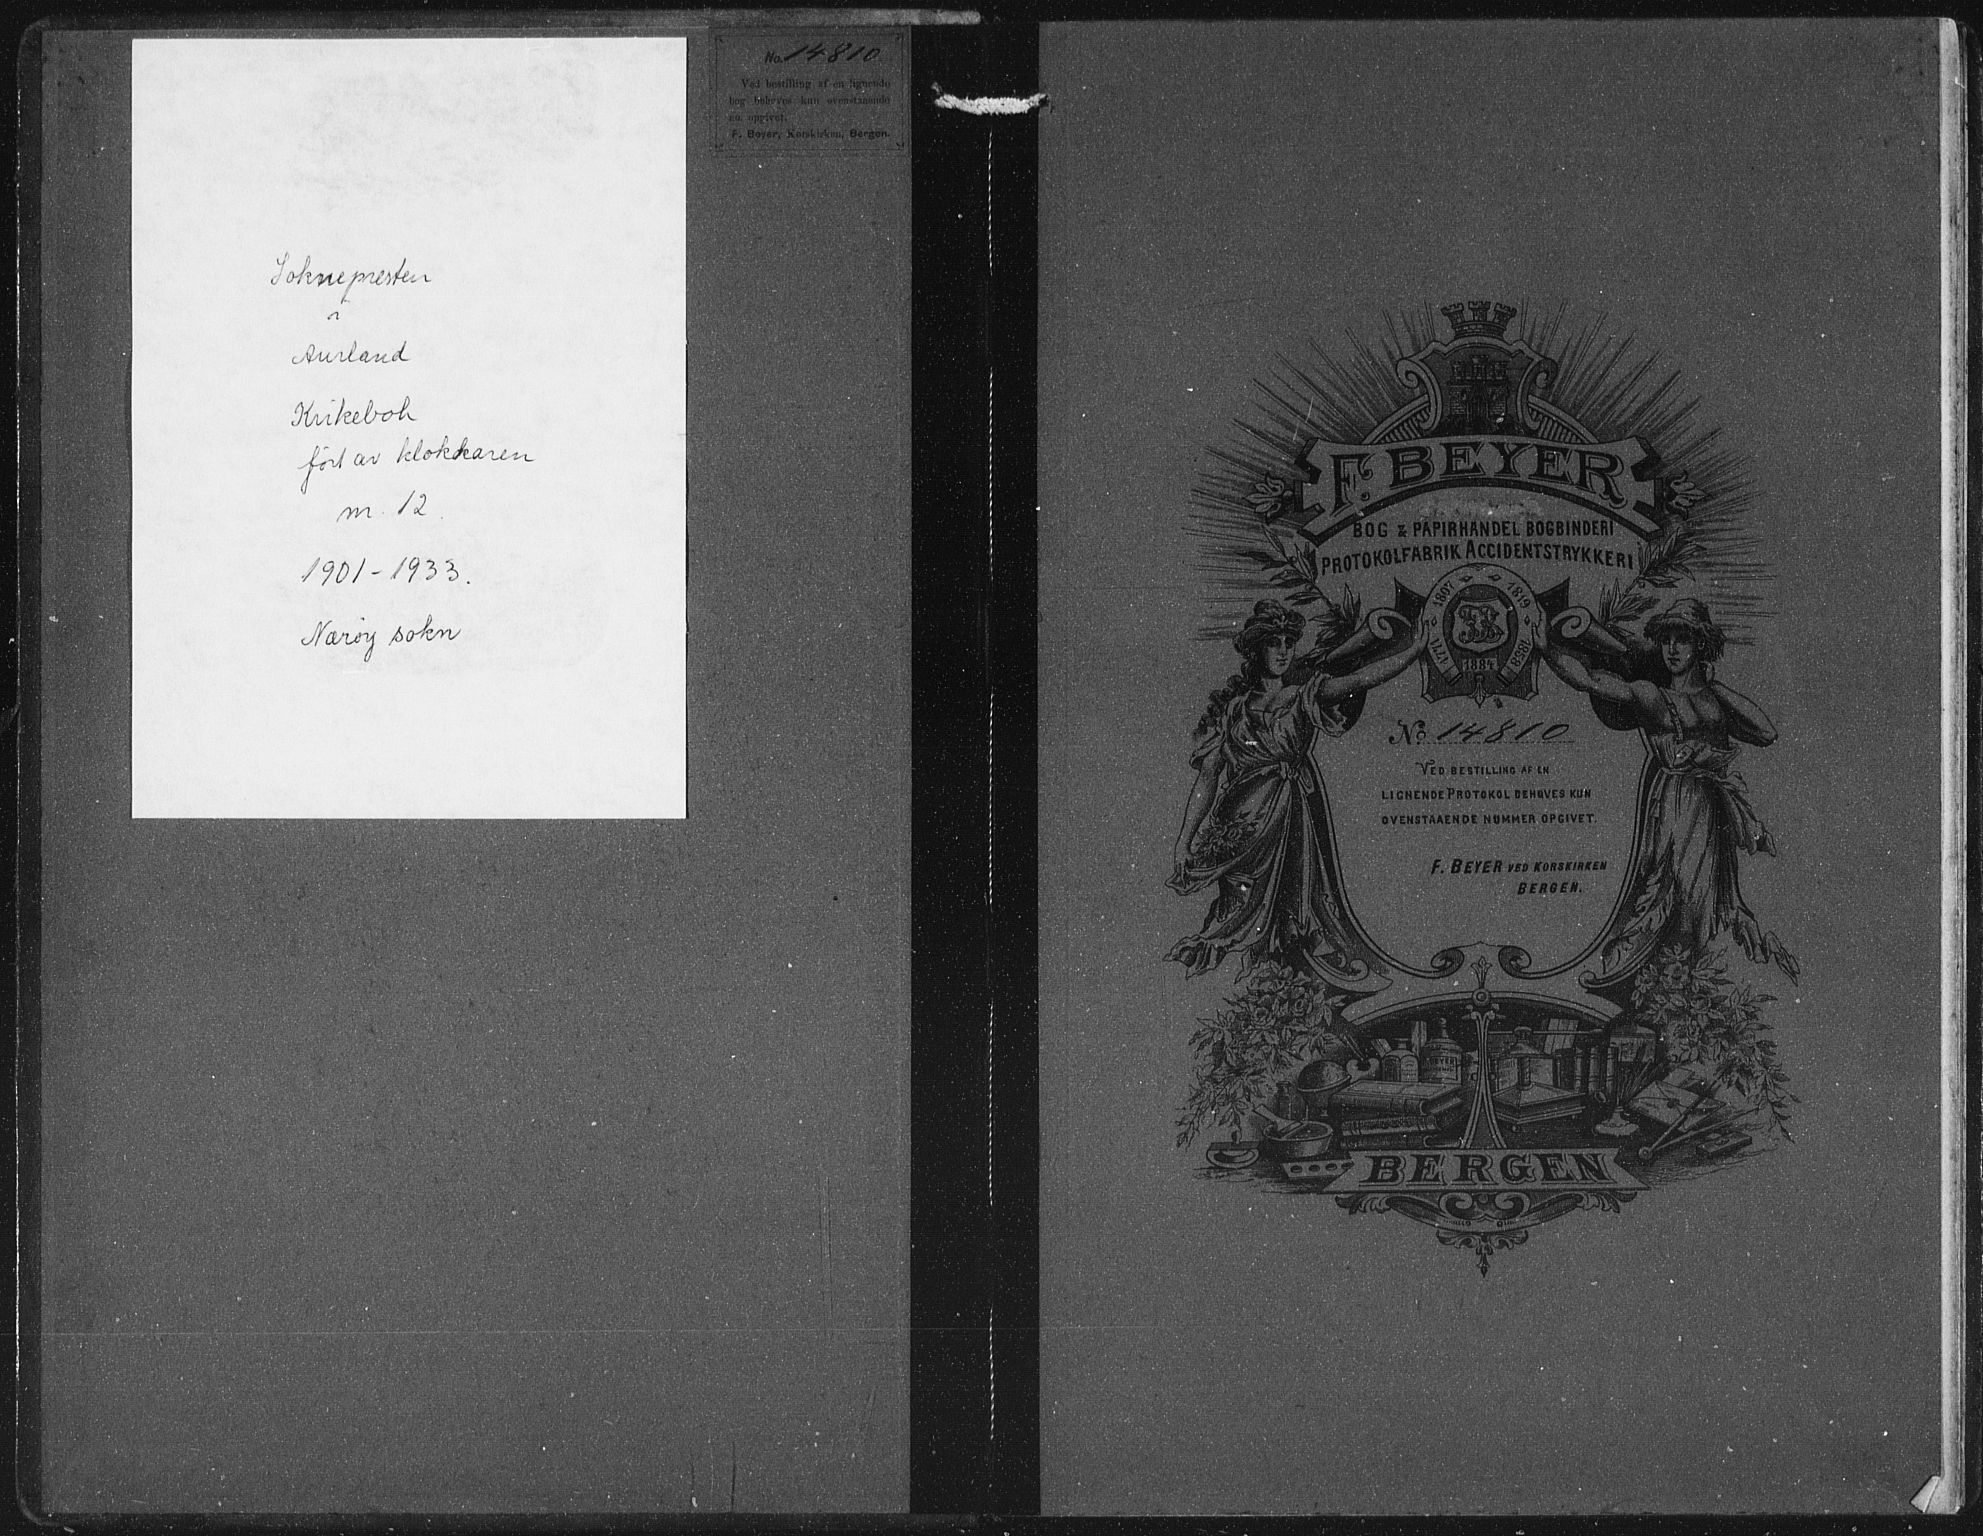 Soknepresten
i
Aurland
Kirkebok
ført av klokkaren
nr. 12
1901-1933.
Nærøy sokn
No. 14810
Ved bestilling af en lignende
bog behøves kun ovenstaaende
no. opgivet.
F. Beyer, Korskirken, Bergen.
F. BEYER
BOG & PAPIRHANDEL BOGBINDERI
PROTOKOLFABRIK ACCIDENTSTRYKKERI
1807 1819
1771 1884 1858
No 14810
VED BESTILLING AF EN
LIGNENDE PROTOKOL BEHØVES KUN
OVENSTAAENDE NUMMER OPGIVET.
F. BEYER VED KORSKIRKEN
BERGEN.
BEYER
BERGEN